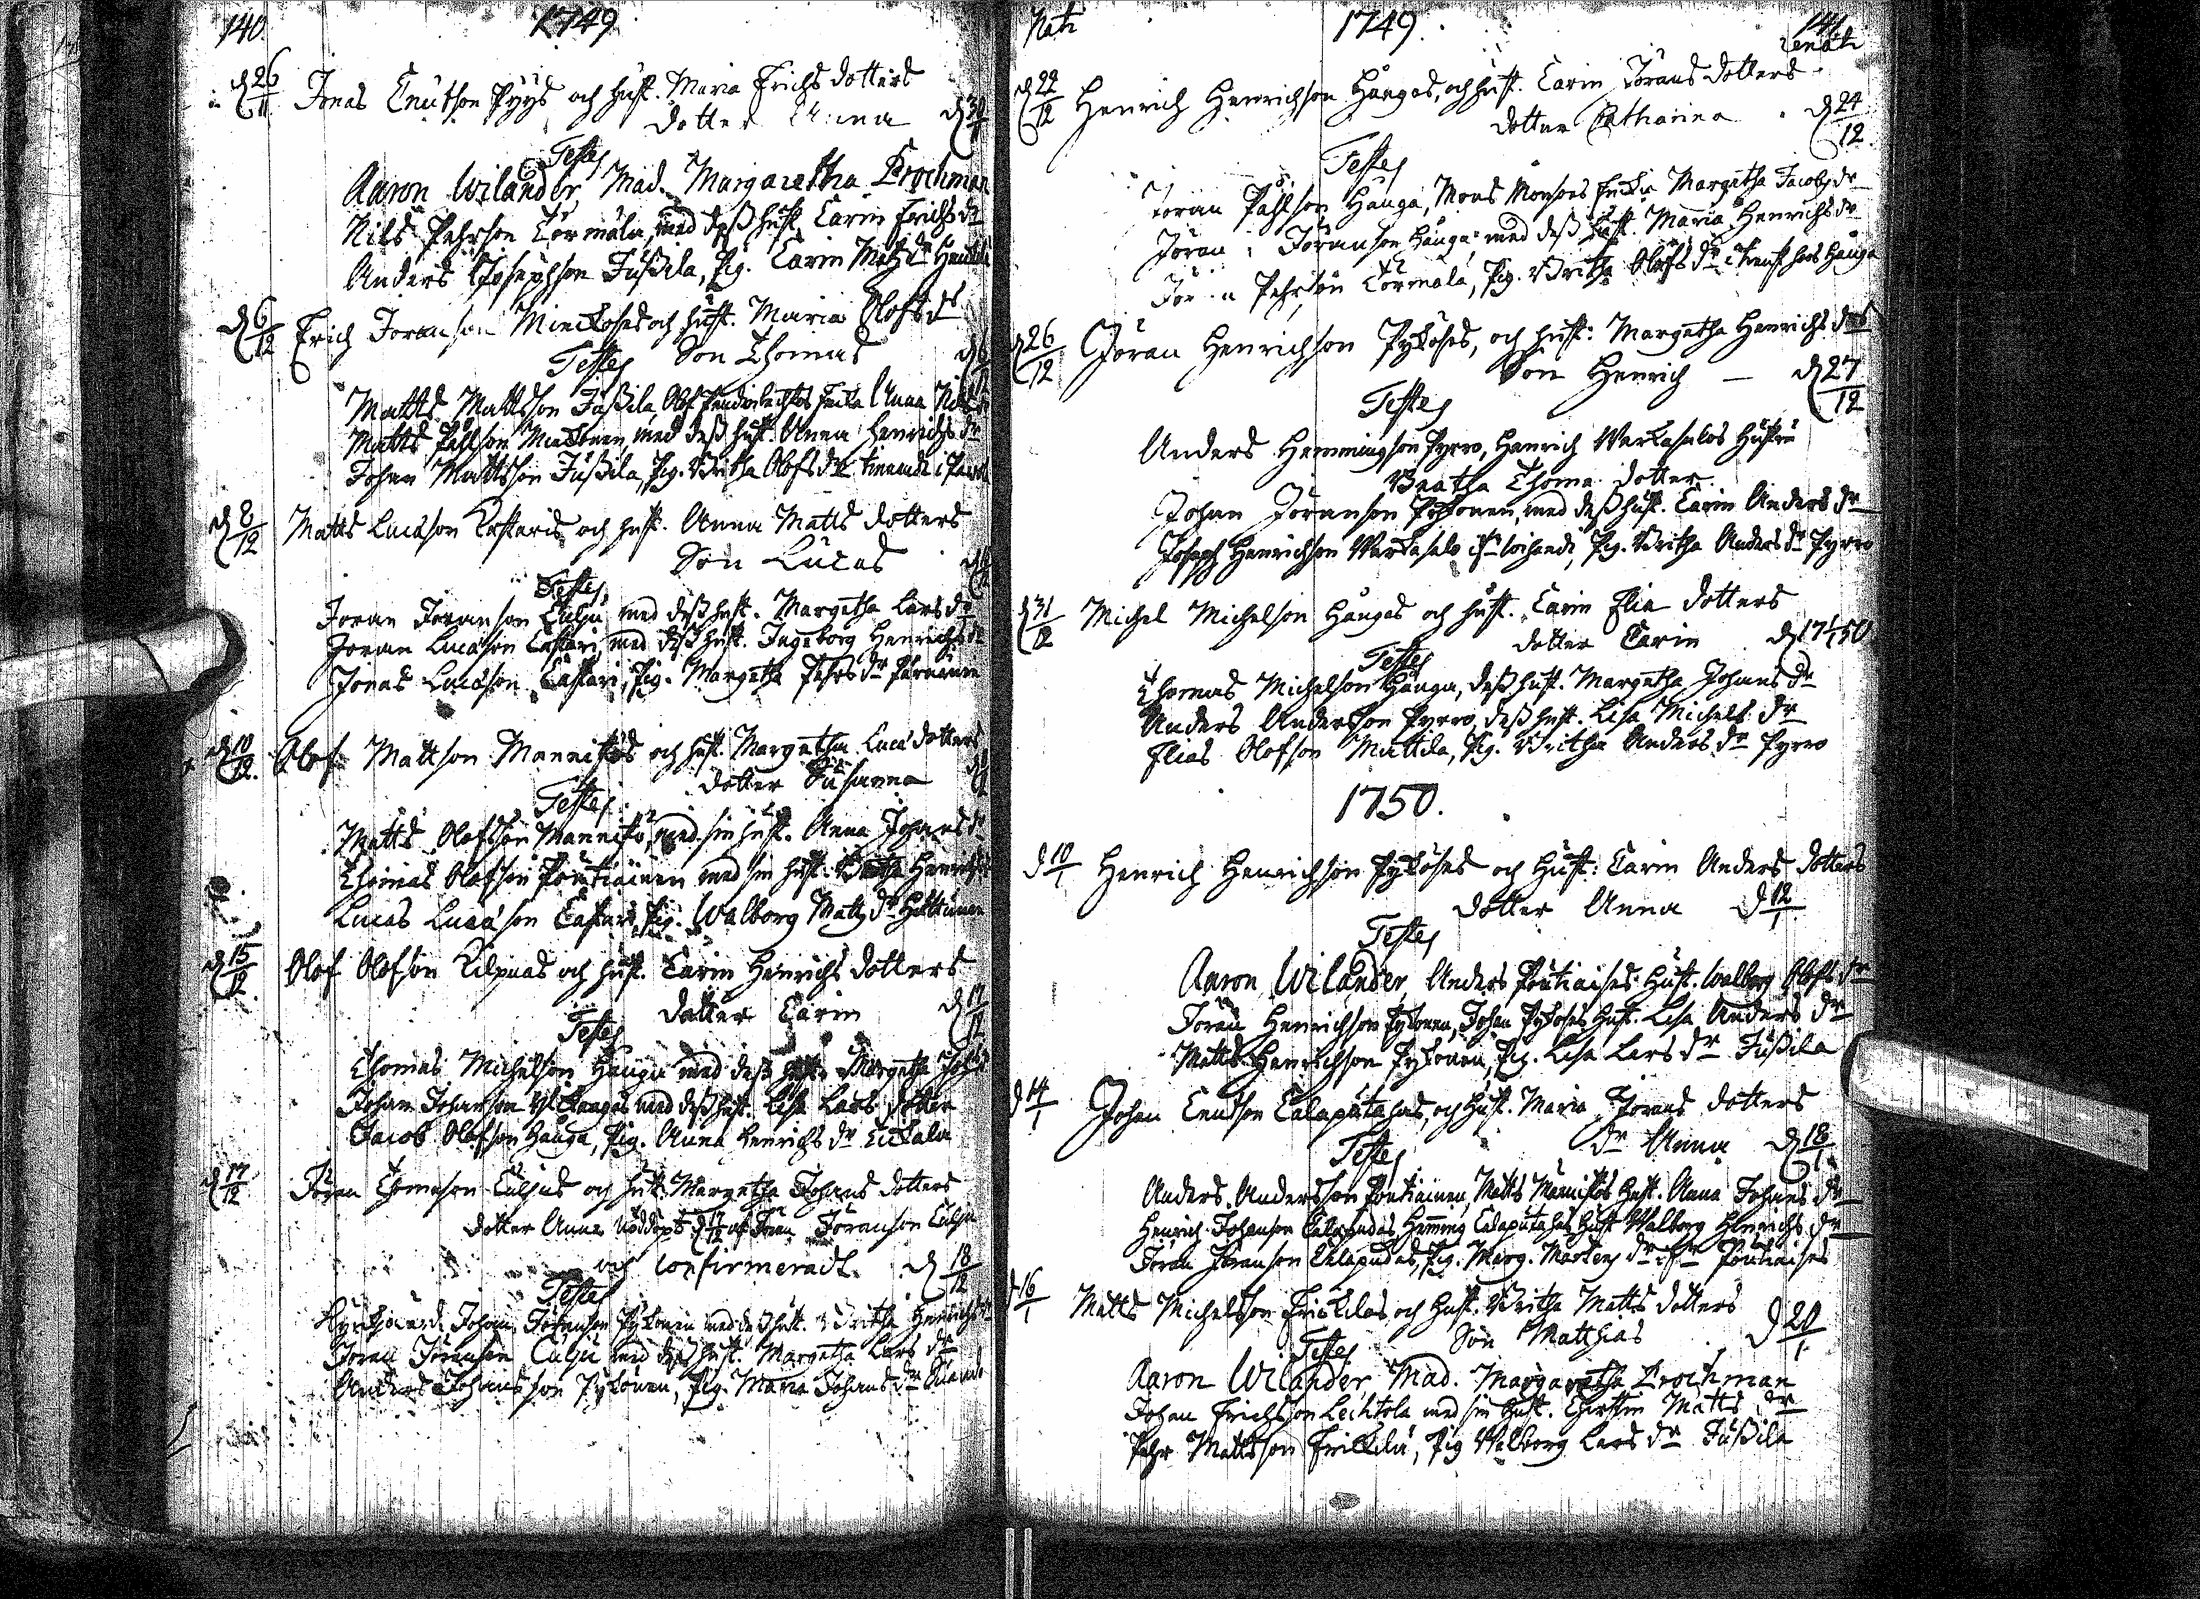 140. 1749.
d 26/11 Jonas Cnutson Pyys och hust. Maria Erichs dotters
dotter Anna d 30/11
Testes
Aaron Wilander, Mad. Margaretha Brochman
Nils Pehrson Tormala, med dess hust. Carin Erichs dr
Anders Josephson Jussila, Pig. Carin Matz dr
d 6/12 Erich Joranson och hust. Maria Olofs dr
Son Thomas d
Testes
Matts Mattsson Jussila, Anna
Matts Påhlson med dess hust. Anna Henrichs dr
Johan Mattsson Jussila, Pig. Britha Olofs dr
d 8/12 Matts Lucason Kaskaris och hust. Anna Matts dotters
Son Lucas
Testes
Joran Joranson Culju med dess hust. Margetha Lars dr
Joran Lucason med dess hust. Ingeborg Henrichs dr
Jonas Lucason Pig. Margetha Pehrs dr
d 10/12 Olof Mattson Mannikös och hust. Margetha Luca dotters
dotter Susanna
Testes
Matts Olofsson Mannikö, med sin hust. Anna Johans dr
Thomas Olofson Pontiainen med sin hust.
Lucas Lucason Pig. Walborg Matz dr
d 15/12 Olof Olofson Kilpuas och hust. Carin Henrichs dotters
dotter Carin d 17/12
Testes
Thomas Michelson Hauga med dess hust. Margetha
Johan Johanson med dess hust. Lisa Lars dotter
Jacob Olofson Hauga, Pig. Anna Henrichs dr
d 17/12 Joran Thomason Culjus och hust. Margetha Johans dotters
dotter Anna nöddöpt d 17/12 af Joran Joranson Culju
och confirmeradt d 18/12
Testes
Johan Joranson Pykönen med dess hust. Britha Henrichs dr
Joran Joranson Culju med dess hust. Margetha Lars dr
Anders Johansson Pykönen, Pig. Maria Johans dr
Nati 1749. 141
renati
d 22/12 Henrich Henrichson Haugas, och hust. Carin Jörans dotters
dotter Catharina d 24/12
Testes
Joran Påhlson Hauga, Mons Monsons Enckia Margetha Jacobs dr
Joran Joranson Hauga med dess hust. Maria Henrichs dr
Pehrson Tormala, Pig. Britha Olofs dr Hauga
d 26/12 Jöran Henrichson Pyköses, och hust: Margetha Henrichs drs
Son Henrich — d 27/12
Testes
Anders Hemmingson Pyrro, Henrich Warkasalos Hustru
Beatha Thoma dotter.
Johan Joranson Pykönen, med dess hust. Carin Anders dr
Joseph Henrichson Warkasalo Pig. Britha Anders dr Pyrro
d 31/12 Michel Michelson Haugas och hust. Carin Elia dotters
dotter Carin d 17/1 50
Testes
Thomas Michelson Hauga, dess hust. Margetha Johans dr
Anders Anderson Pyrro, dess hust. Lisa Michels dr
Elias Olofson Mattila, Pig. Britha Anders dr Pyrro
1750.
d 10/1 Henrich Henrichson Pyköses och Hust: Carin Anders dotters
dotter Anna d 12/1
Testes
Aaron Wilander, Anders Pontiaises Hust. Walborg Olofs dr
Joran Henrichson Pykönen, Johan Pyköses hust. Lisa Anders dr
Matts Henrichson Pykönen, Pig. Lisa Lars dr Jussila
d 14/1 Johan Cnutson Calaputahas, och hust. Maria Jorans dotters
dr Anna d 18/1
Testes
Anders Andersson Pontiainen, Matts Mannikös hust. Anna Johans dr
Henrich Johanson Calapudas, Heming Calaputahas hust Walborg Henrichs dr
Joran Joranson Calapudas, Pig. Marg. Martens dr Pontiaises
d 16/1 Matts Michelsson Erickilas och hust. Britha Matts dotters
Son Matthias d 20/1
Testes
Aaron Wilander, Mad. Margaretha Brochman
Johan Erichsson Lechtola med sin hust. Matts dr
Pehr Mattsson Erickilä, Pig Walborg Lars dr Jussila